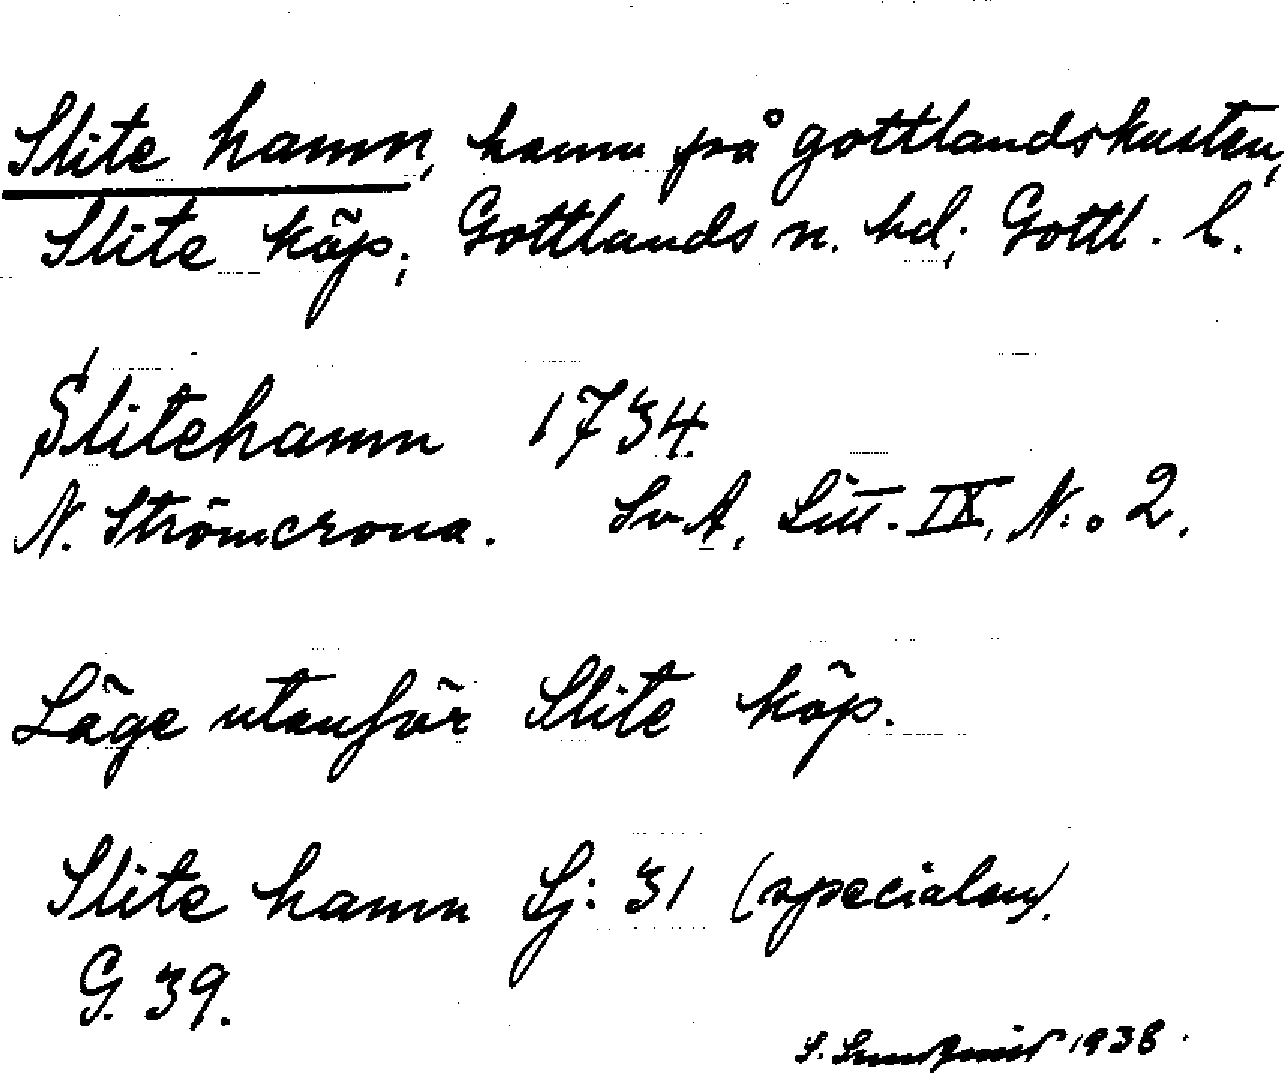 Slite hamn, hamn på gottlandskusten,
Slite köp., Gottlands n. hd; Gottl. l.
Slitehamn 1734.
N. Strömcrona. SvA, Litt. IX, N:o 2.
Läge utanför Slite köp.
Slite hamn Sj: 31 (specialen).
G. 39.
S. 1938.